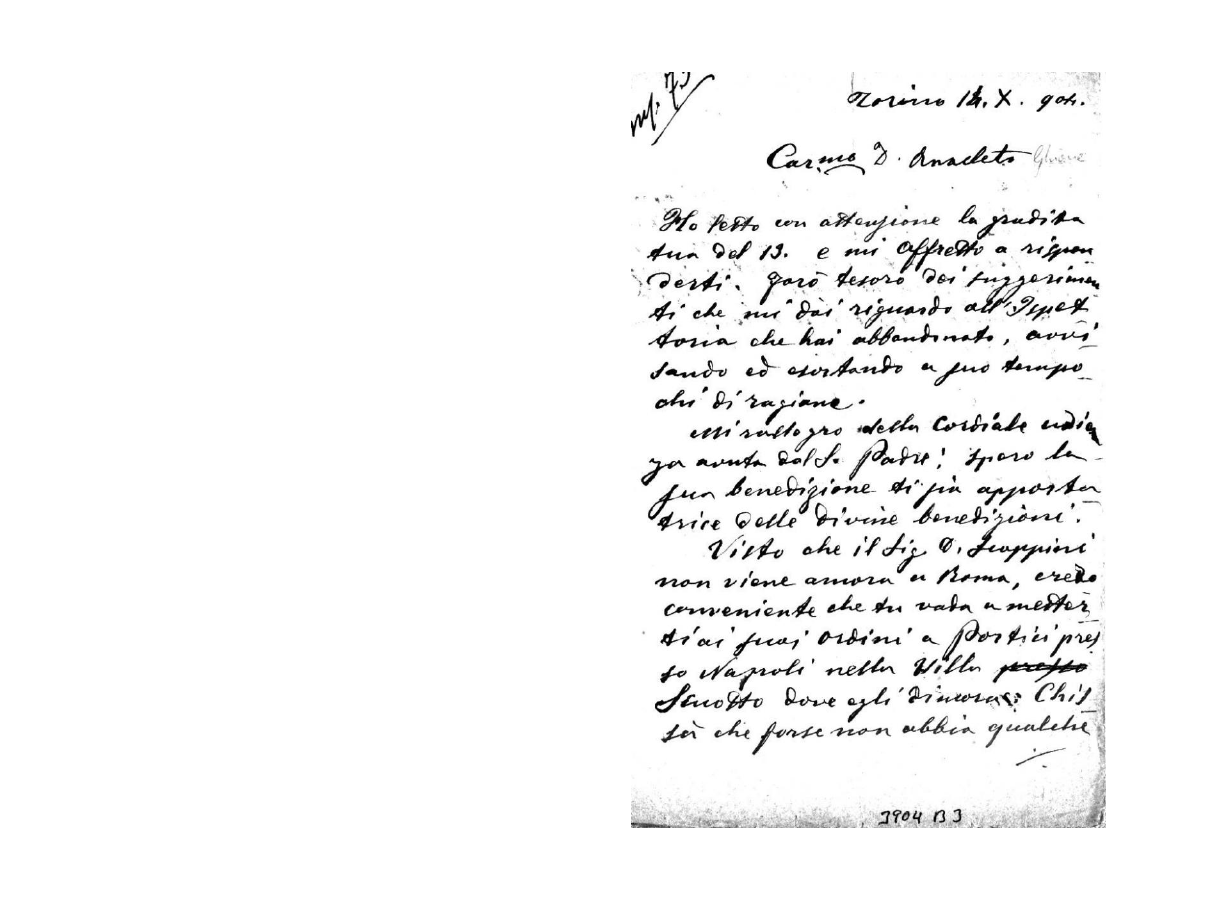 Torino 14. X. 904.
Car.mo D. Anacleto
Ho letto con attenzione la gradita
tua del 13. e mi affretto a rispon
derti. Farò tesoro dei suggerimen
ti che mi dai riguardo all'Ispet
toria che hai abbandonato, avvi
sando ed esortando a suo tempo
chi di ragione.
Mi rallegro della cordiale udien
za avuta dal S. Padre; spero la
sua benedizione ti sia apporta
trice delle divine benedizioni.
Visto che il Sig D. Scappini
non viene ancora a Roma, credo
conveniente che tu vada a metter
ti ai suoi ordini a Portici pres
so Napoli nella Villa presso
dove egli dimora: Chis
sà che forse non abbia qualche
3904 B 3